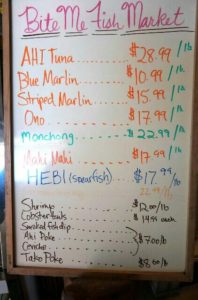 Bite Me Fish Market
AHI Tuna....... $28.99/lb
Blue Marlin....... $10.99/lb
Striped Marlin..... $15.99/lb
Ono............ $17.99/lb
Monchong....... $22.99/lb
Mahi Mahi....... $17.99/lb
HEBI (Spearfish) $17.99/lb
22.99/lb
Shrimp........ $12.00/lb
Lobster tails...... $14.99 each
Smoked fish dip
Ahi Poke........ $7.00/lb
Ceviche
Tako Poke...... $8.60/lb